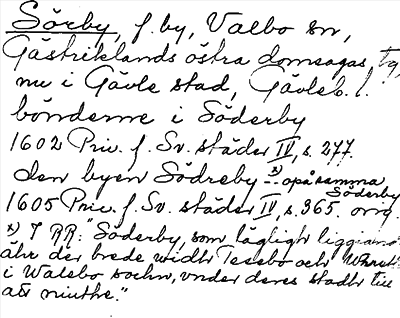 Sörby, f. by, Valbo sn,
Gästriklands östra domsagas tg,
nu i Gävle stad, Gävleb. l.
bönderne i Söderby
1602 Priv. f. Sv. städer IV, s. 277.
den byen Södreby x) opå samma
Söderby
1605 Priv. f. Sv. städer IV, s. 365. orig.
x) I RR: "Söderby, som läglight liggiand
ähr der brede widh Tesebo och
i Walebo sochn, vnder deres stadh till
att niuthe."